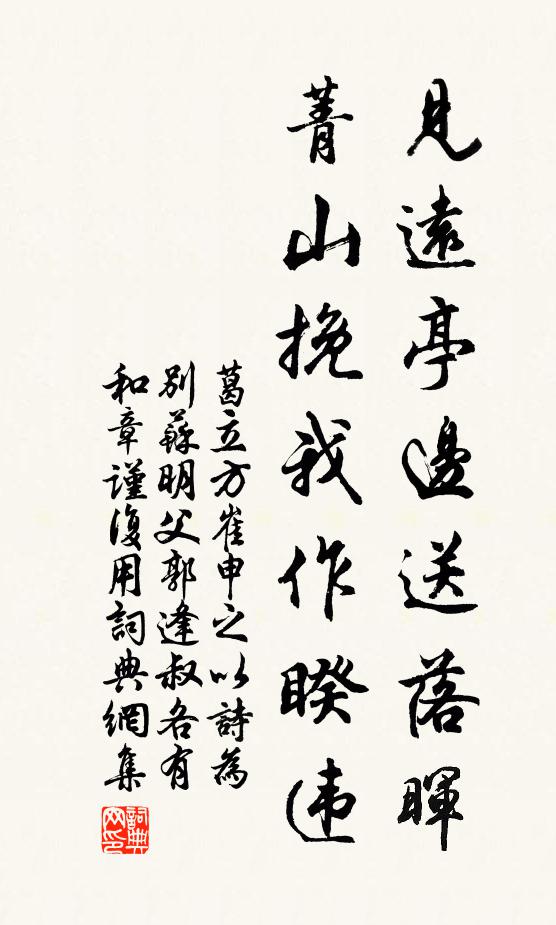 見遠亭邊送落暉
菁山挽我作睽违
葛立方崔申之以詩為
別蘇明父郭逢叔各有
和章謹復用詞典網集
詞典网印